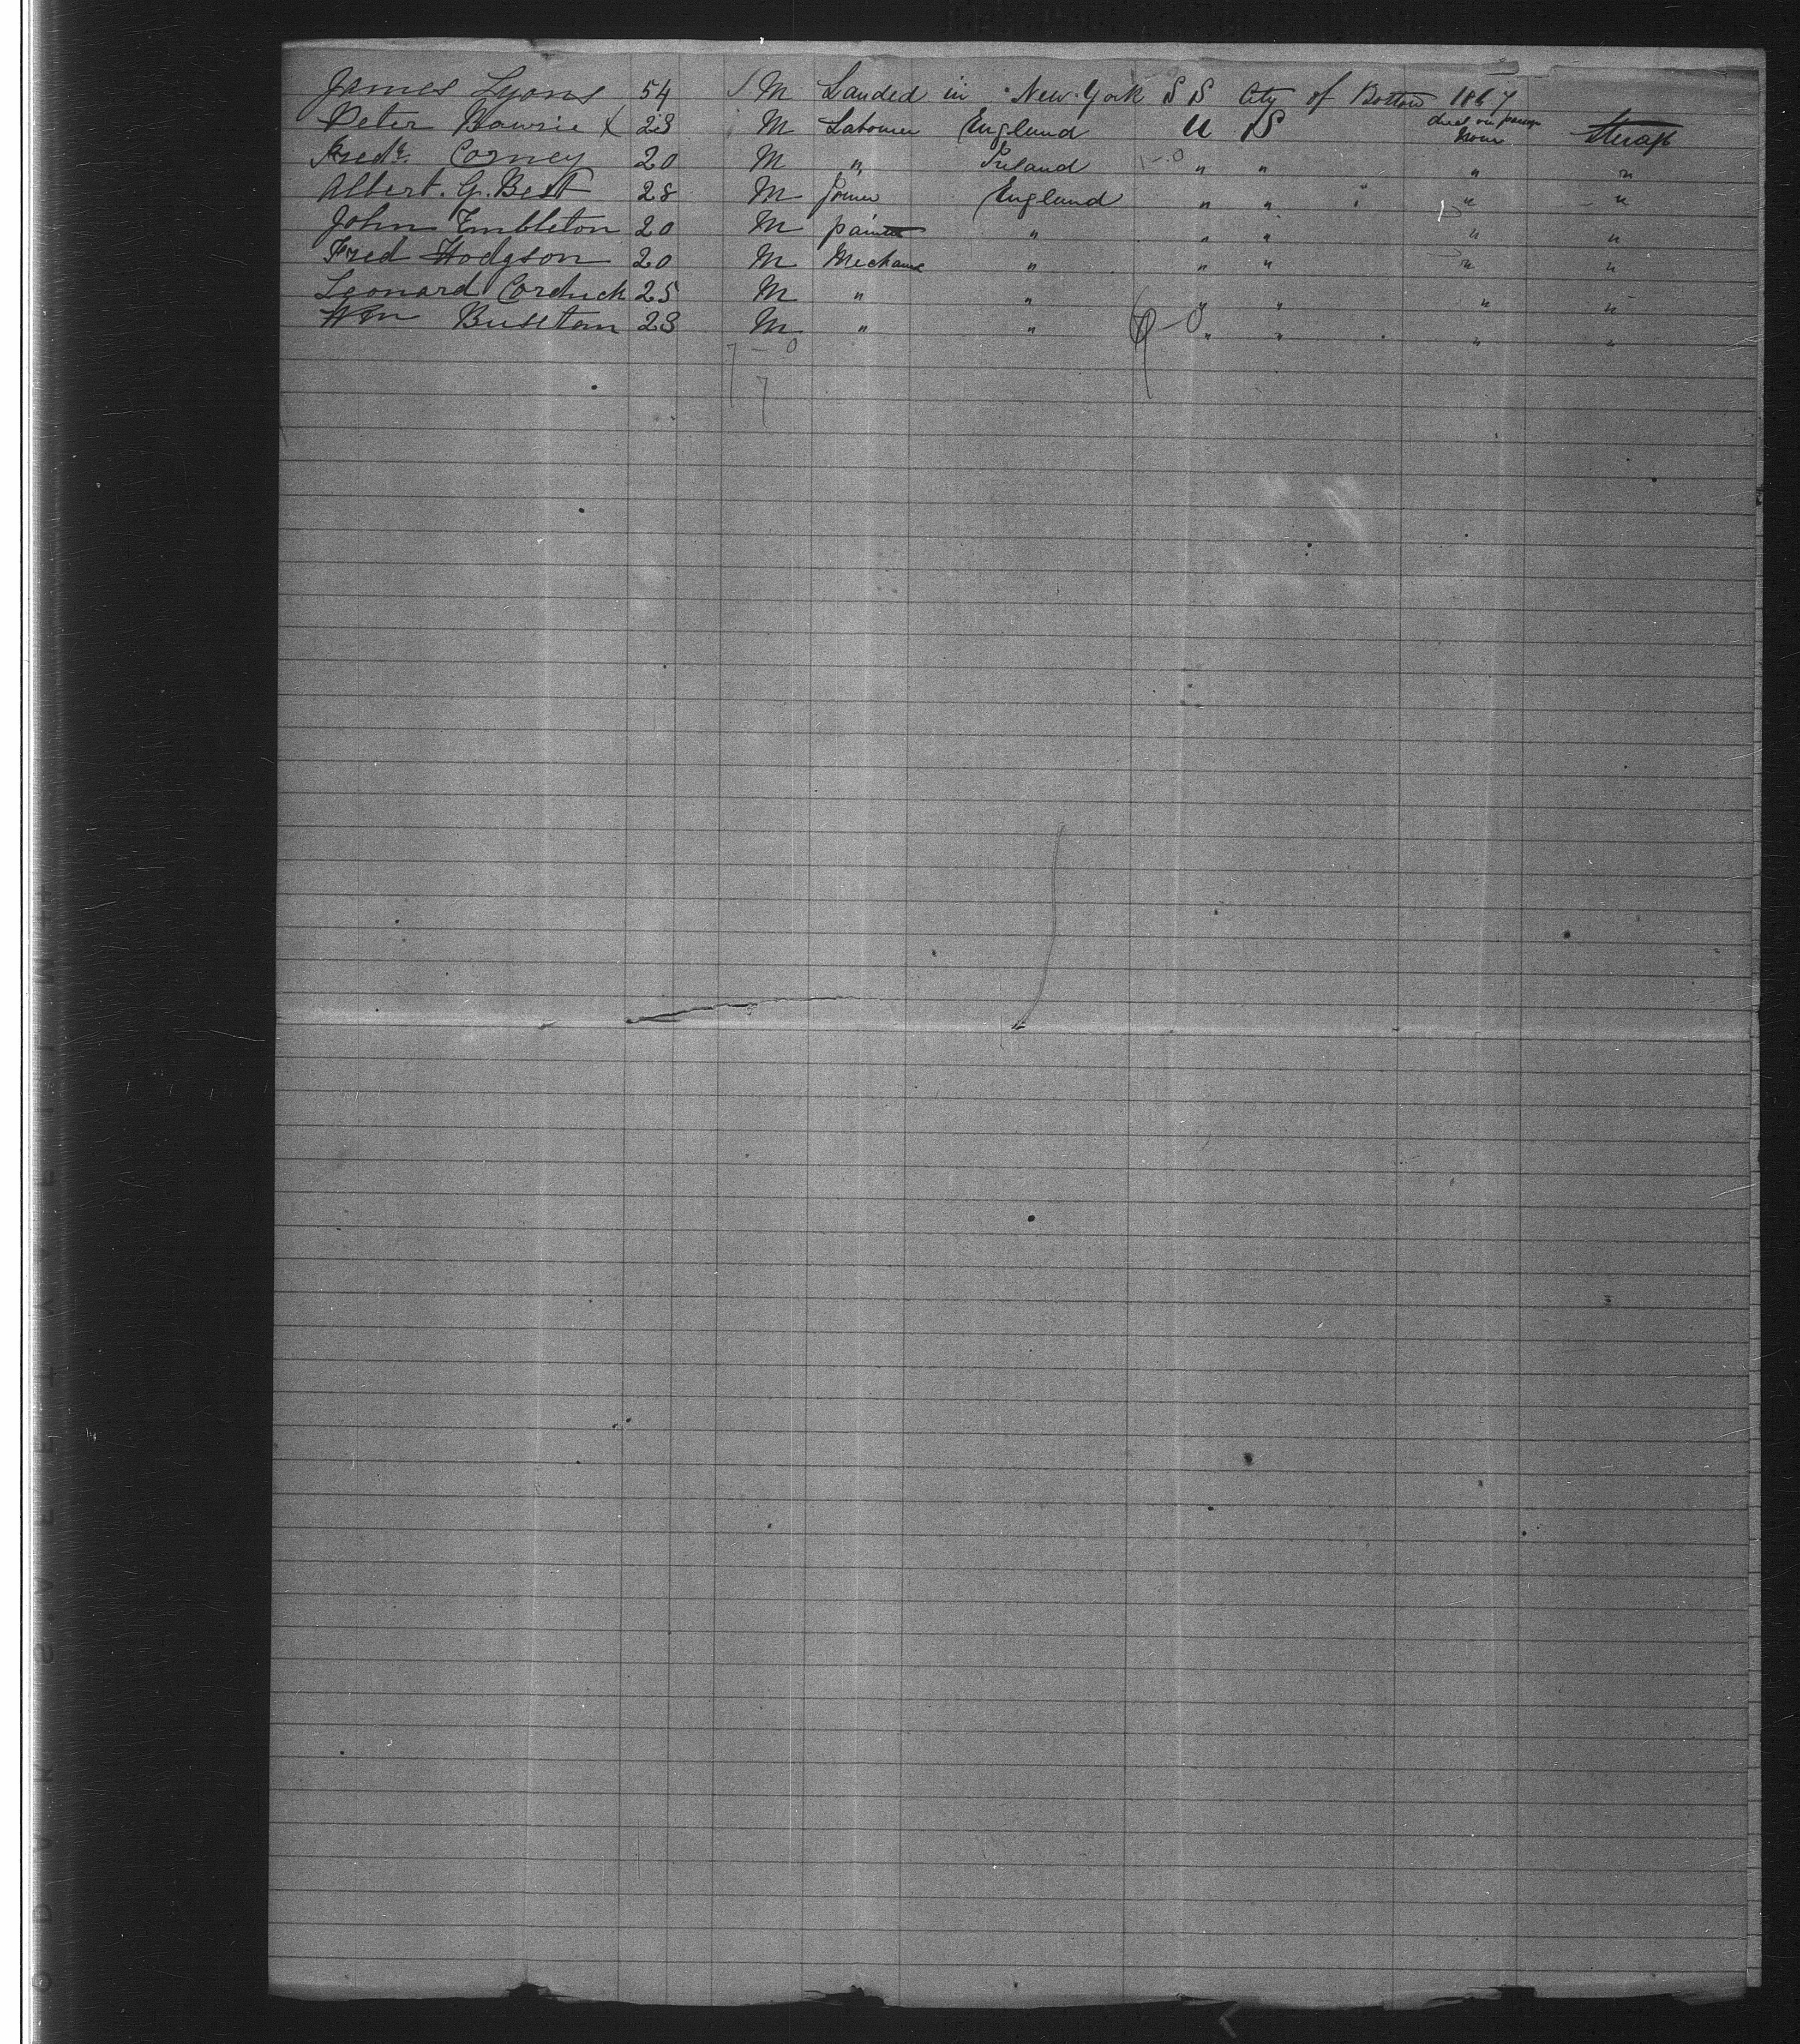 James Lyons 54 M Landed in New York S S City of Boston 1867
Peter Bowrie X 23 M Labourer England U S died on passage None Steerage
Fredk. Corney 20 M " Ireland 1-0 " " " "
Albert. G. Best 28 M Joiner England " " " "
John Embleton 20 M painter " " " " "
Fred Hodgson 20 M Mechanic " " " " "
Leonard 25 M " " " " " "
Wm 23 M " " " " " "
7-0
7